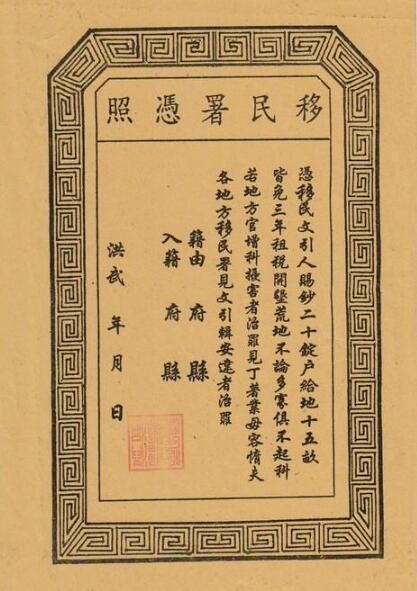 移民署憑照
憑移民文引人賜鈔二十錠户給地十五畝
皆免三年租税開墾荒地不論多寡俱不起科
若地方官增科擾害者治罪見丁著業毋容惰夫
各地方移民署見文引輯安違者治罪
籍由 府 縣
入籍 府 縣
洪武 年 月 日